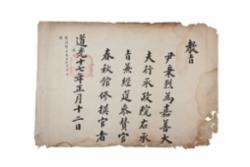 敎旨
尹秉烈爲嘉善大
夫行承政院右承
旨兼經筵參贊官
春秋館修撰官者
道光十七年正月十二日